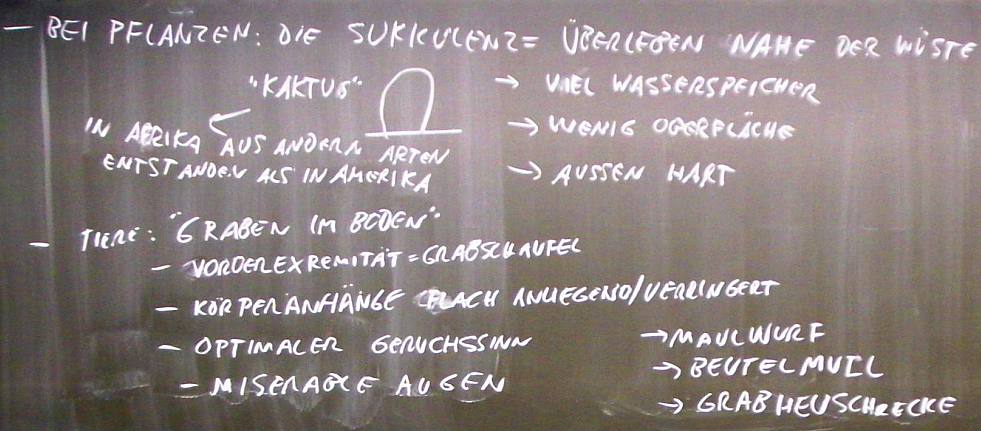 – BEI PFLANZEN: DIE SUKKULENZ = ÜBERLEBEN NAHE DER WÜSTE
"KAKTUS"
→ VIEL WASSERSPEICHER
IN AFRIKA AUS ANDERN ARTEN
→ WENIG OBERFLÄCHE
ENTSTANDEN ALS IN AMERIKA
→ AUSSEN HART
– TIERE: "GRABEN IM BODEN"
– VORDEREXREMITÄT = GRABSCHAUFEL
– KÖRPERANHÄNGE FLACH ANLIEGEND/VERRINGERT
– OPTIMALER GERUCHSSINN
→ MAULWURF
– MISERABLE AUGEN
→ BEUTELMULL
→ GRABHEUSCHRECKE